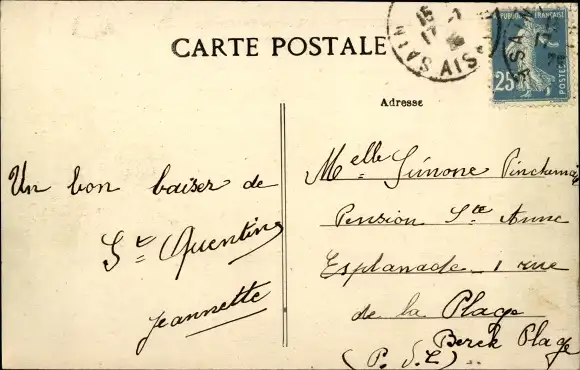 CARTE POSTALE
15
17
SAIN
AIS
RÉPUBLIQUE FRANÇAISE
25
POSTES
Adresse
Un bon baiser de
St Quentin
Jeannette
Melle Simone
Pension Ste Anne
Esplanade - 1 rue
de la Plage
Berck Plage
(P. d. C)